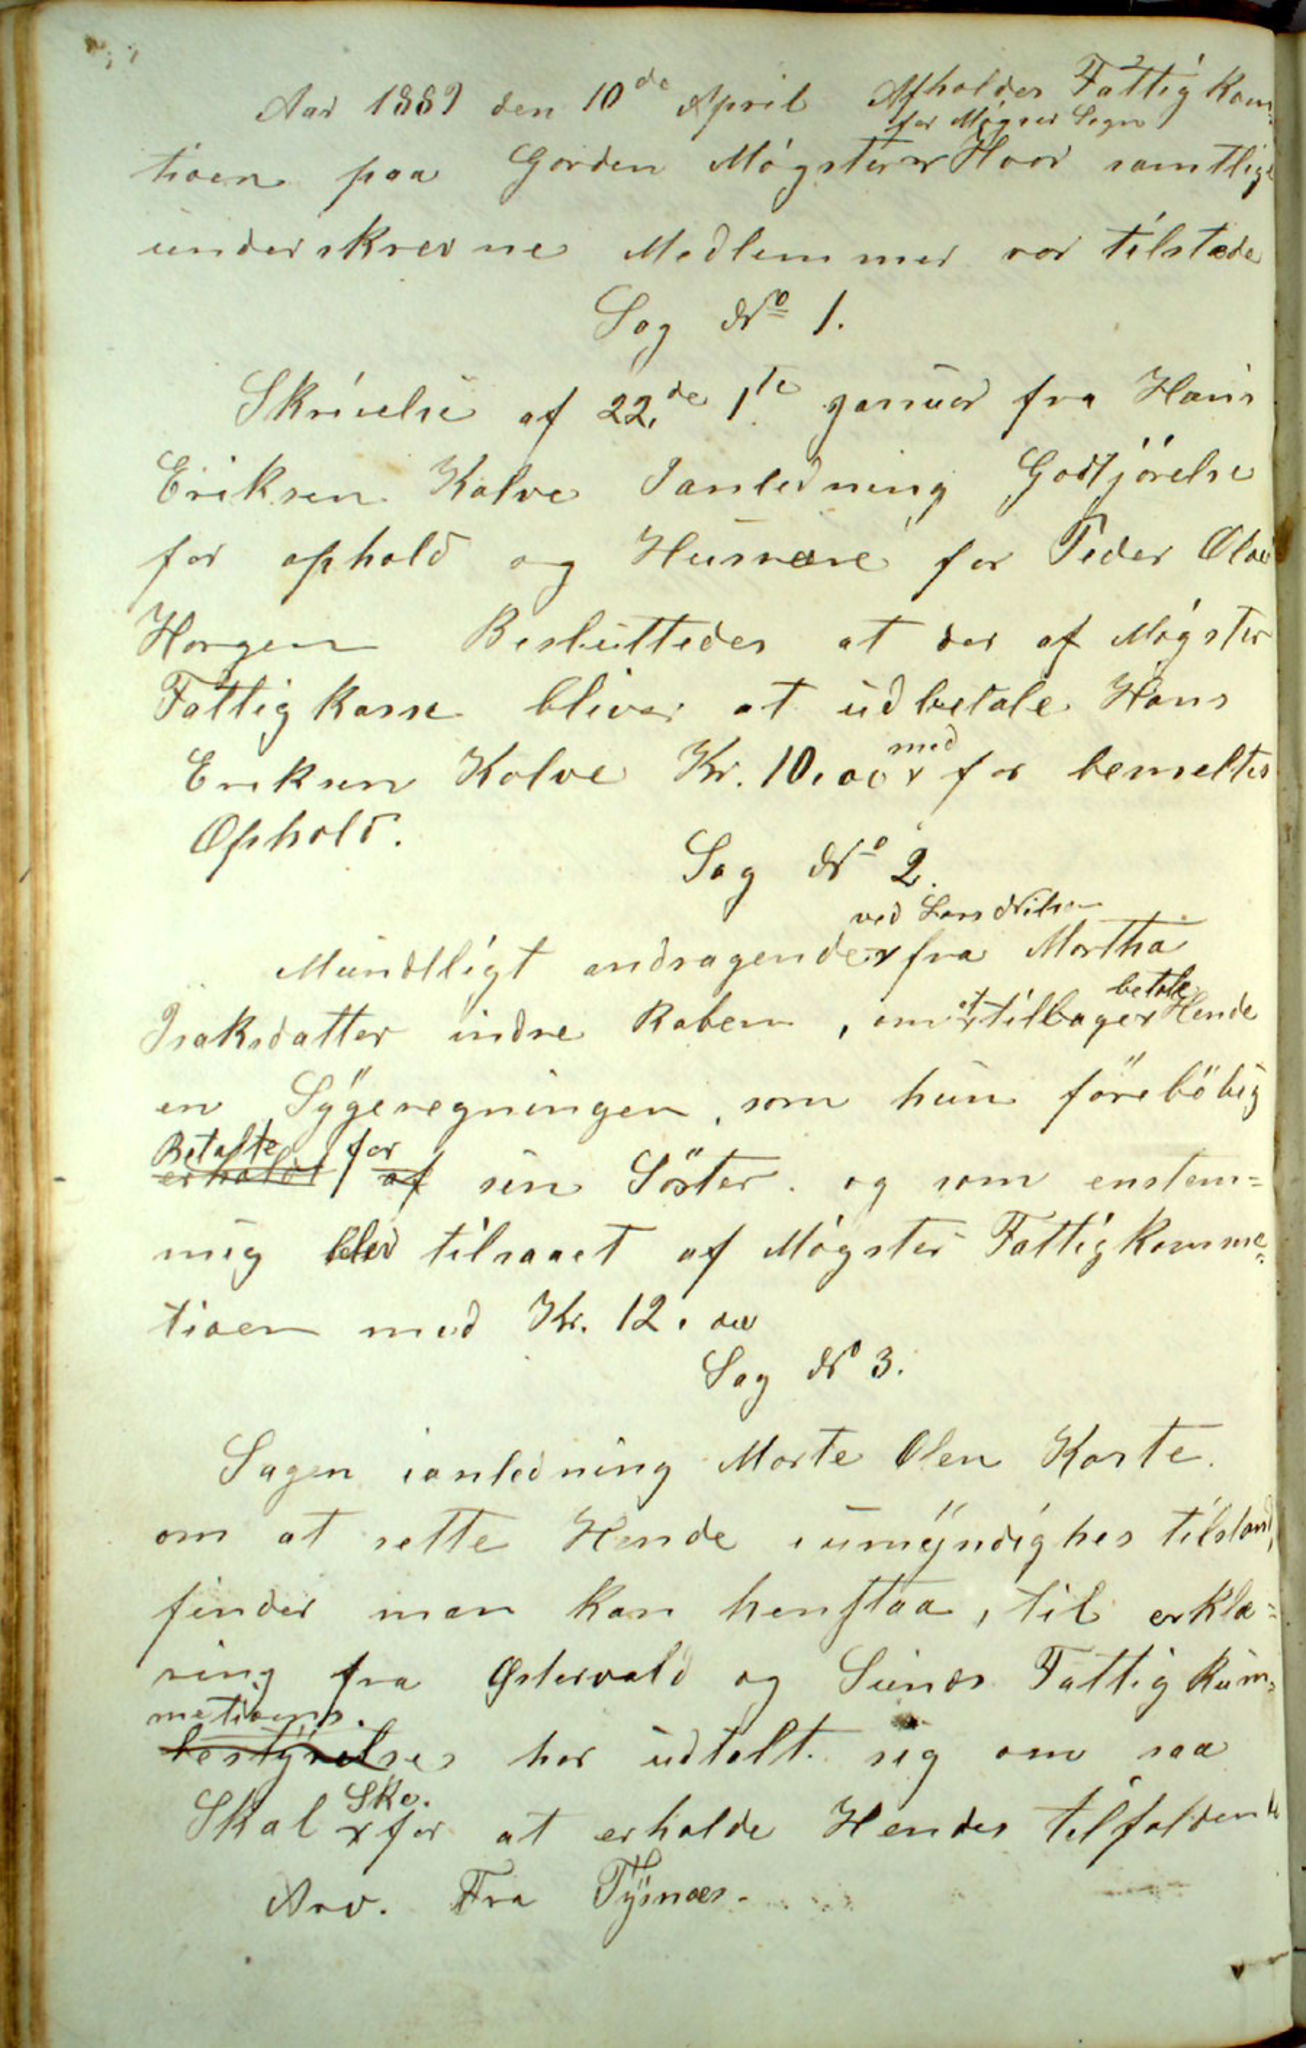 Aar 1889 den 10de April Afholdes Fattigkom-
for Møgster Sogn
tioen paa Gorden Møgster Hvor samtlige
underskrevne Medlemmer var tilstæde
Sag No 1.
Skrivelse af 22.de 1te januar fra Hans
Eriksen Kalve Ianledning Godtjörelse
for ophold og Husvære for Peder Olai
Horgen Besluttedes at der af Møgster
Fattigkasse bliver at udbetale Hans
med
Eriksen Kalve Kr. 10,00 x for bemeltes
Ophold.
Sag No 2.
ved Lars Nilsen
Mundtligt andragende x fra Martha
at betale
Isaksdatter indre Raben, om x tilbage x Hende
en Sÿgeregningen, som hun förelöbig
Betalte for
erholdt af sin Söster. og som enstem=
mig blev tilsaaet af Møgster Fattigkomme=
tioen med Kr. 12.00
Sag No 3.
Sagen ianledning Marte Olsen Karte.
om at sette Hende i umÿndighes tilstand,
finder man kan henstaa, til erklæ=
ring fra Østervold og Sunds Fattigkum=
metioens.
bestÿrelses har udtalt sig om saa
Ske.
Skal x for at erholde Hendes tilfaldende
Arv. Fra Tÿsnæs.